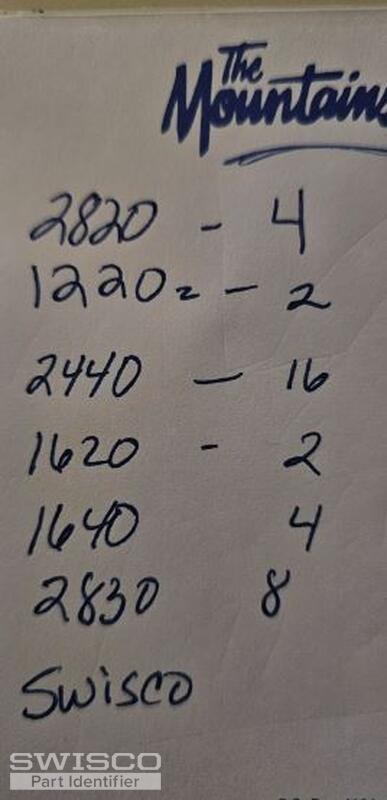 The
Mountains
2820 - 4
1220 2 - 2
2440 - 16
1620 - 2
1640 4
2830 8
Swisco
SWISCO
Part Identifier